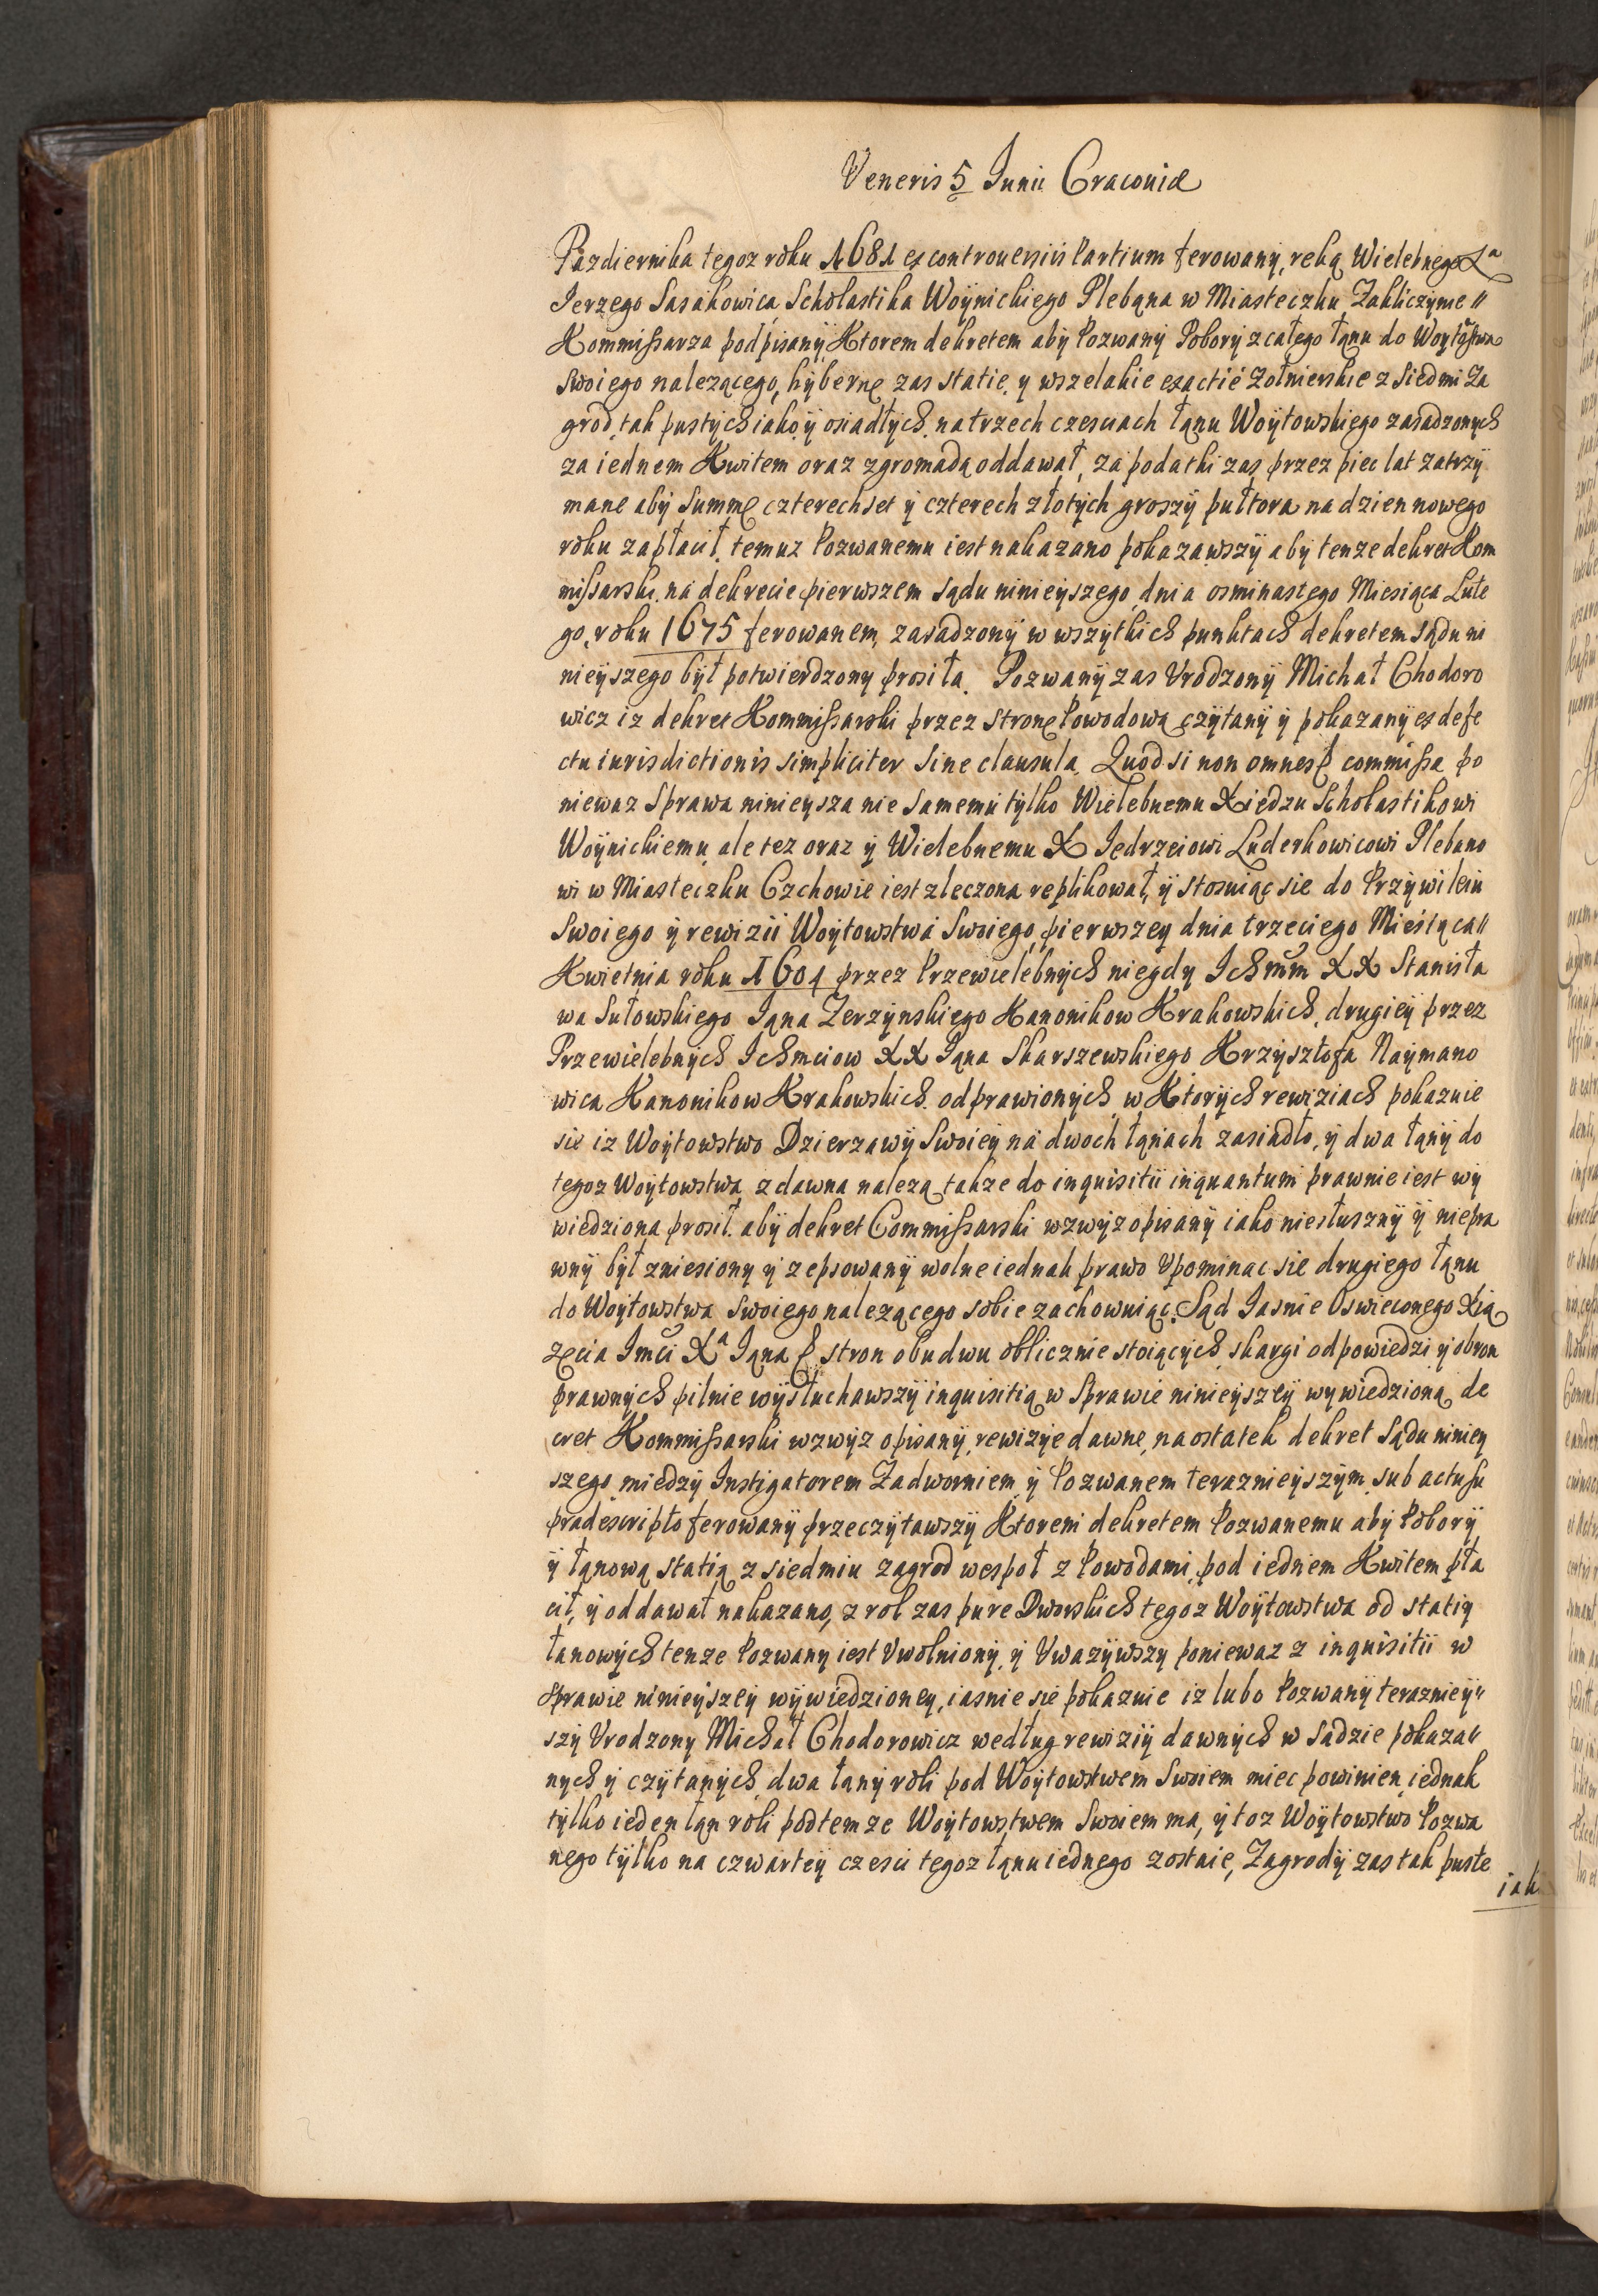 Veneris 5 Junii Cracouiæ
Pazdiernika tegoz roku 1681 ex controuersiis Partium ferowany, reką Wielebnego Xª
Jerzego Sasakowica Scholastika Woÿnickiego Plebąna w Miasteczku Zakliczÿnie //
Kommißarza podpisanÿ Ktorem dekretem abÿ Pozwanÿ Poborÿ z całego łąnu do Woÿtostwa
swoiego nalezącego, hÿbernę zas statie y wszelakie exactie Zołnierskie z Siedmi Za
grod, tak pustÿch iako ÿ osiadłÿch na trzech czesciach łąnu Woÿtowskiego zasadzonych
za iednem Kwitem oraz zgromadą oddawał, za podatki zas przez piec lat zatrzÿ
mane abÿ summę czterechset ÿ czterech złotÿch groszÿ pułtora na dzien nowego
roku zapłacił, temuz Pozwanemu iest nakazano pokazawszÿ abÿ tenze dekret Kom
mißarski na dekrecie pierwszem sądu ninieÿszego dnia osminastego Miesiąca Lute
go, roku 1675 ferowanem, zasadzonÿ w wszÿtkich punktach dekretem sądu ni
nieÿszego bÿł potwierdzony prosiła. Pozwanÿ zas Vrodzonÿ Michał Chodoro
wicz iz dekret Kommißarski przez stronę Powodową czÿtanÿ ÿ pokazanÿ ex defe
ctu iurisdictionis simpliciter sine clausula Quod si non omnes commißa po
niewaz Sprawa ninieÿsza nie samemu tÿlko Wielebnemu Xiedzu Scholastikowi
Woÿnickiemu ale tez oraz ÿ Wielebnemu X Jedrzeiowi Luderkowicowi Plebano
wi w Miasteczku Czchowie iest zleczona replikował, ÿ stosuiąc sie do Przÿwileiu
Swoiego ÿ rewizii Woÿtowstwa Swoiego, pierwszey dnia trzeciego Miesiąca //
Kwietnia roku 1601 przez Przewielebnÿch niegdy Ichmm XX Stanisła
wa Sułowskiego Jąna Zerzÿnskiego Kanonikow Krakowskich, drugieÿ przez
Przewielebnÿch Ichmciow XX Jąna Skarszewskiego Krzÿsztofa Naÿmano
wica Kanonikow Krakowskich odprawionÿch w Ktorÿch rewiziach pokazuie
sie iz Woÿtowstwo Dzierzawÿ Swoieÿ na dwoch łąnach zasiadło, ÿ dwa łąnÿ do
tegoz Woÿtowstwa zdawna nalezą takze do inquisitii inquantum prawnie iest wÿ
wiedziona prosił abÿ dekret Commißarski wzwÿz opisanÿ iako niesłusznÿ ÿ niepra
wnÿ bÿł zniesiony ÿ zepsowanÿ wolne iednak prawo Vpominac sie drugiego łąnu
do Woÿtowstwa swoiego nalezącego sobie zachowuiąc. Sąd Jasnie Oswieconego Xią
zęcia Jmći Xª Jąna stron obudwu oblicznie stoiącÿch skargi odpowiedzi ÿ obron
prawnÿch pilnie wÿsłuchawszÿ inquisitią w Sprawie ninieÿszeÿ wywiedzioną de
cret Kommißarski wzwÿz opisanÿ, rewizÿe dawne, na ostatek dekret Sądu niniey
szego miedzÿ Instigatorem Zadworniem ÿ Pozwanem teraznieÿszÿm sub actu su
pradescripto ferowanÿ przeczÿtawszÿ Ktorem dekretem Pozwanemu abÿ Poborÿ
ÿ łąnową statią z siedmiu zagrod wespoł z Powodami pod iedniem Kwitem pła
cił, ÿ oddawał nakazano, z rol zas pure Dworskich tegoz Woÿtowstwa od statiy
łanowÿch tenze Pozwany iest Vwolnionÿ, ÿ Vwazÿwszy poniewaz z inquisitii w
Sprawie ninieÿszeÿ wÿwiedzioney, iasnie sie pokazuie iz lubo Pozwanÿ teraznieÿ//
szÿ Vrodzony Michał Chodorowicz według rewiziÿ dawnÿch w sadzie pokaza//
nych ÿ czÿtanÿch, dwa łanÿ roli pod Woÿtowstwem Swoiem miec powinien iednak
tÿlko ieden łąn roli pod temze Woÿtowstwem Swoiem ma, ÿ toz Woÿtowstwo Pozwa
nego tÿlko na czwarteÿ czesci tegoz łąnu iednego zostaie, Zagrodÿ zas tak puste
iak